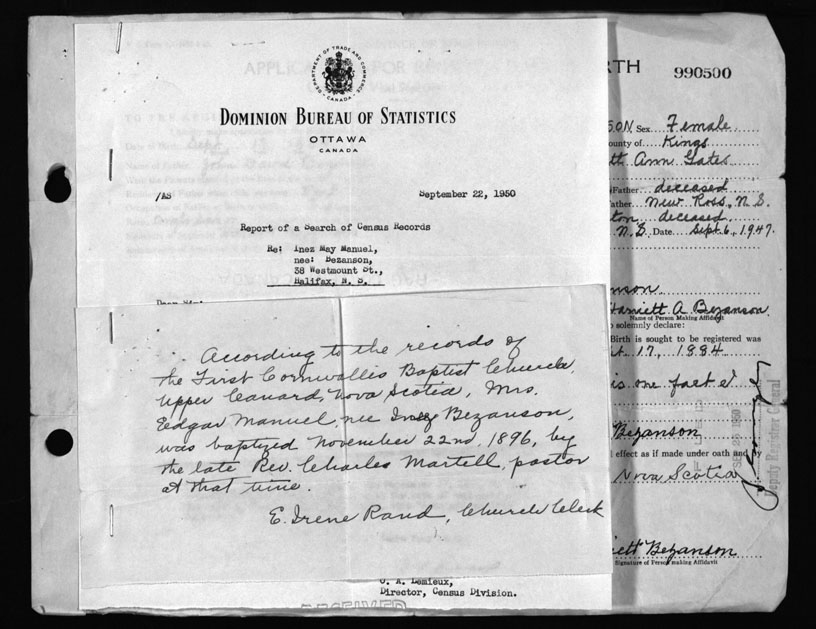 DEPARTMENT OF TRADE AND COMMERCE
CANADA
DOMINION BUREAU OF STATISTICS
OTTAWA
CANADA
/AS
September 22, 1950
Report of a Search of Census Records
Re: Inez May Manuel,
nee: Bezanson,
38 Westmount St.,
Halifax, N. S.
According to the records of
the First Cornwallis Baptist Church,
Upper Canard, Nova Scotia, Mrs.
Eedgar Manuel, nee Inez Bezanson,
was baptized November 22nd, 1896, by
the late Rev. Charles Martell, pastor
at that time.
E. Irene Rand, Church Clerk
Lemieux,
Director, Census Division.
RECEIVED
RTH 990500
SON Sex Female
ounty of Kings
tt Ann Gates
Father deceased
ather New Ross, N. S.
ton deceased
N. S. Date Sept. 6, 1947.
nson
Harriett A Bezanson
Name of Person Making Affidavit
solemnly declare:
Birth is sought to be registered was
t. 17, 1884
is one fact
Bezanson
effect as if made under oath and by
Nova Scotia
iett Bezanson
Signature of Person making Affidavit
Deputy Registrar General